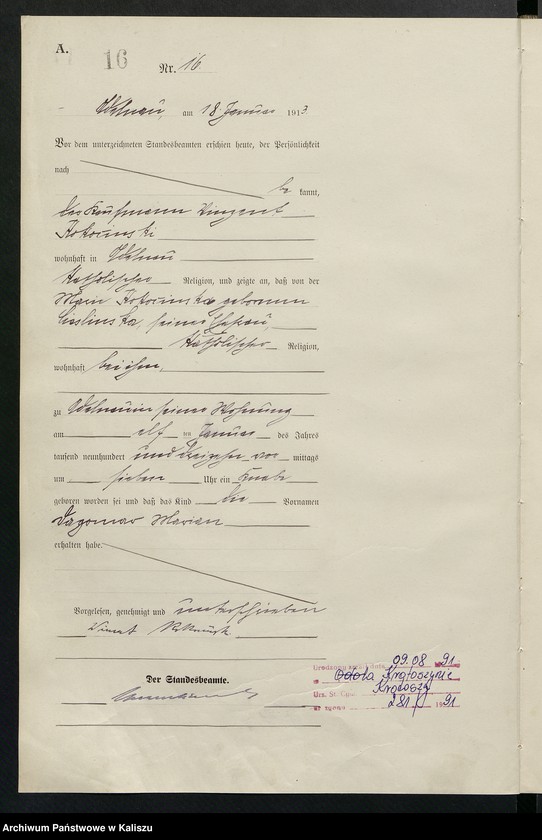 A.
16
Nr. 16.
Adelnau, am 18 Januar 1913
Vor dem unterzeichneten Standesbeamten erschien heute, der Persönlichkeit
nach
be kannt,
der Kaufmann Vinzent
Kokocinski
wohnhaft in Adelnau
katholischer Religion, und zeigte an, daß von der
Marie Kokocinska geborenen
seiner Ehefrau,
katholischer Religion,
wohnhaft bei ihm,
zu Adelnau in seiner Wohnung
am elf ten Januar des Jahres
tausend neunhundert und dreizehn vor mittags
um sieben Uhr ein Knabe
geboren worden sei und daß das Kind die Vornamen
Dagomar Marian
erhalten habe.
Vorgelesen, genehmigt und unterschrieben
Der Standesbeamte.
09.08 1991
Krotoszynie
281 1991
Archiwum Państwowe w Kaliszu